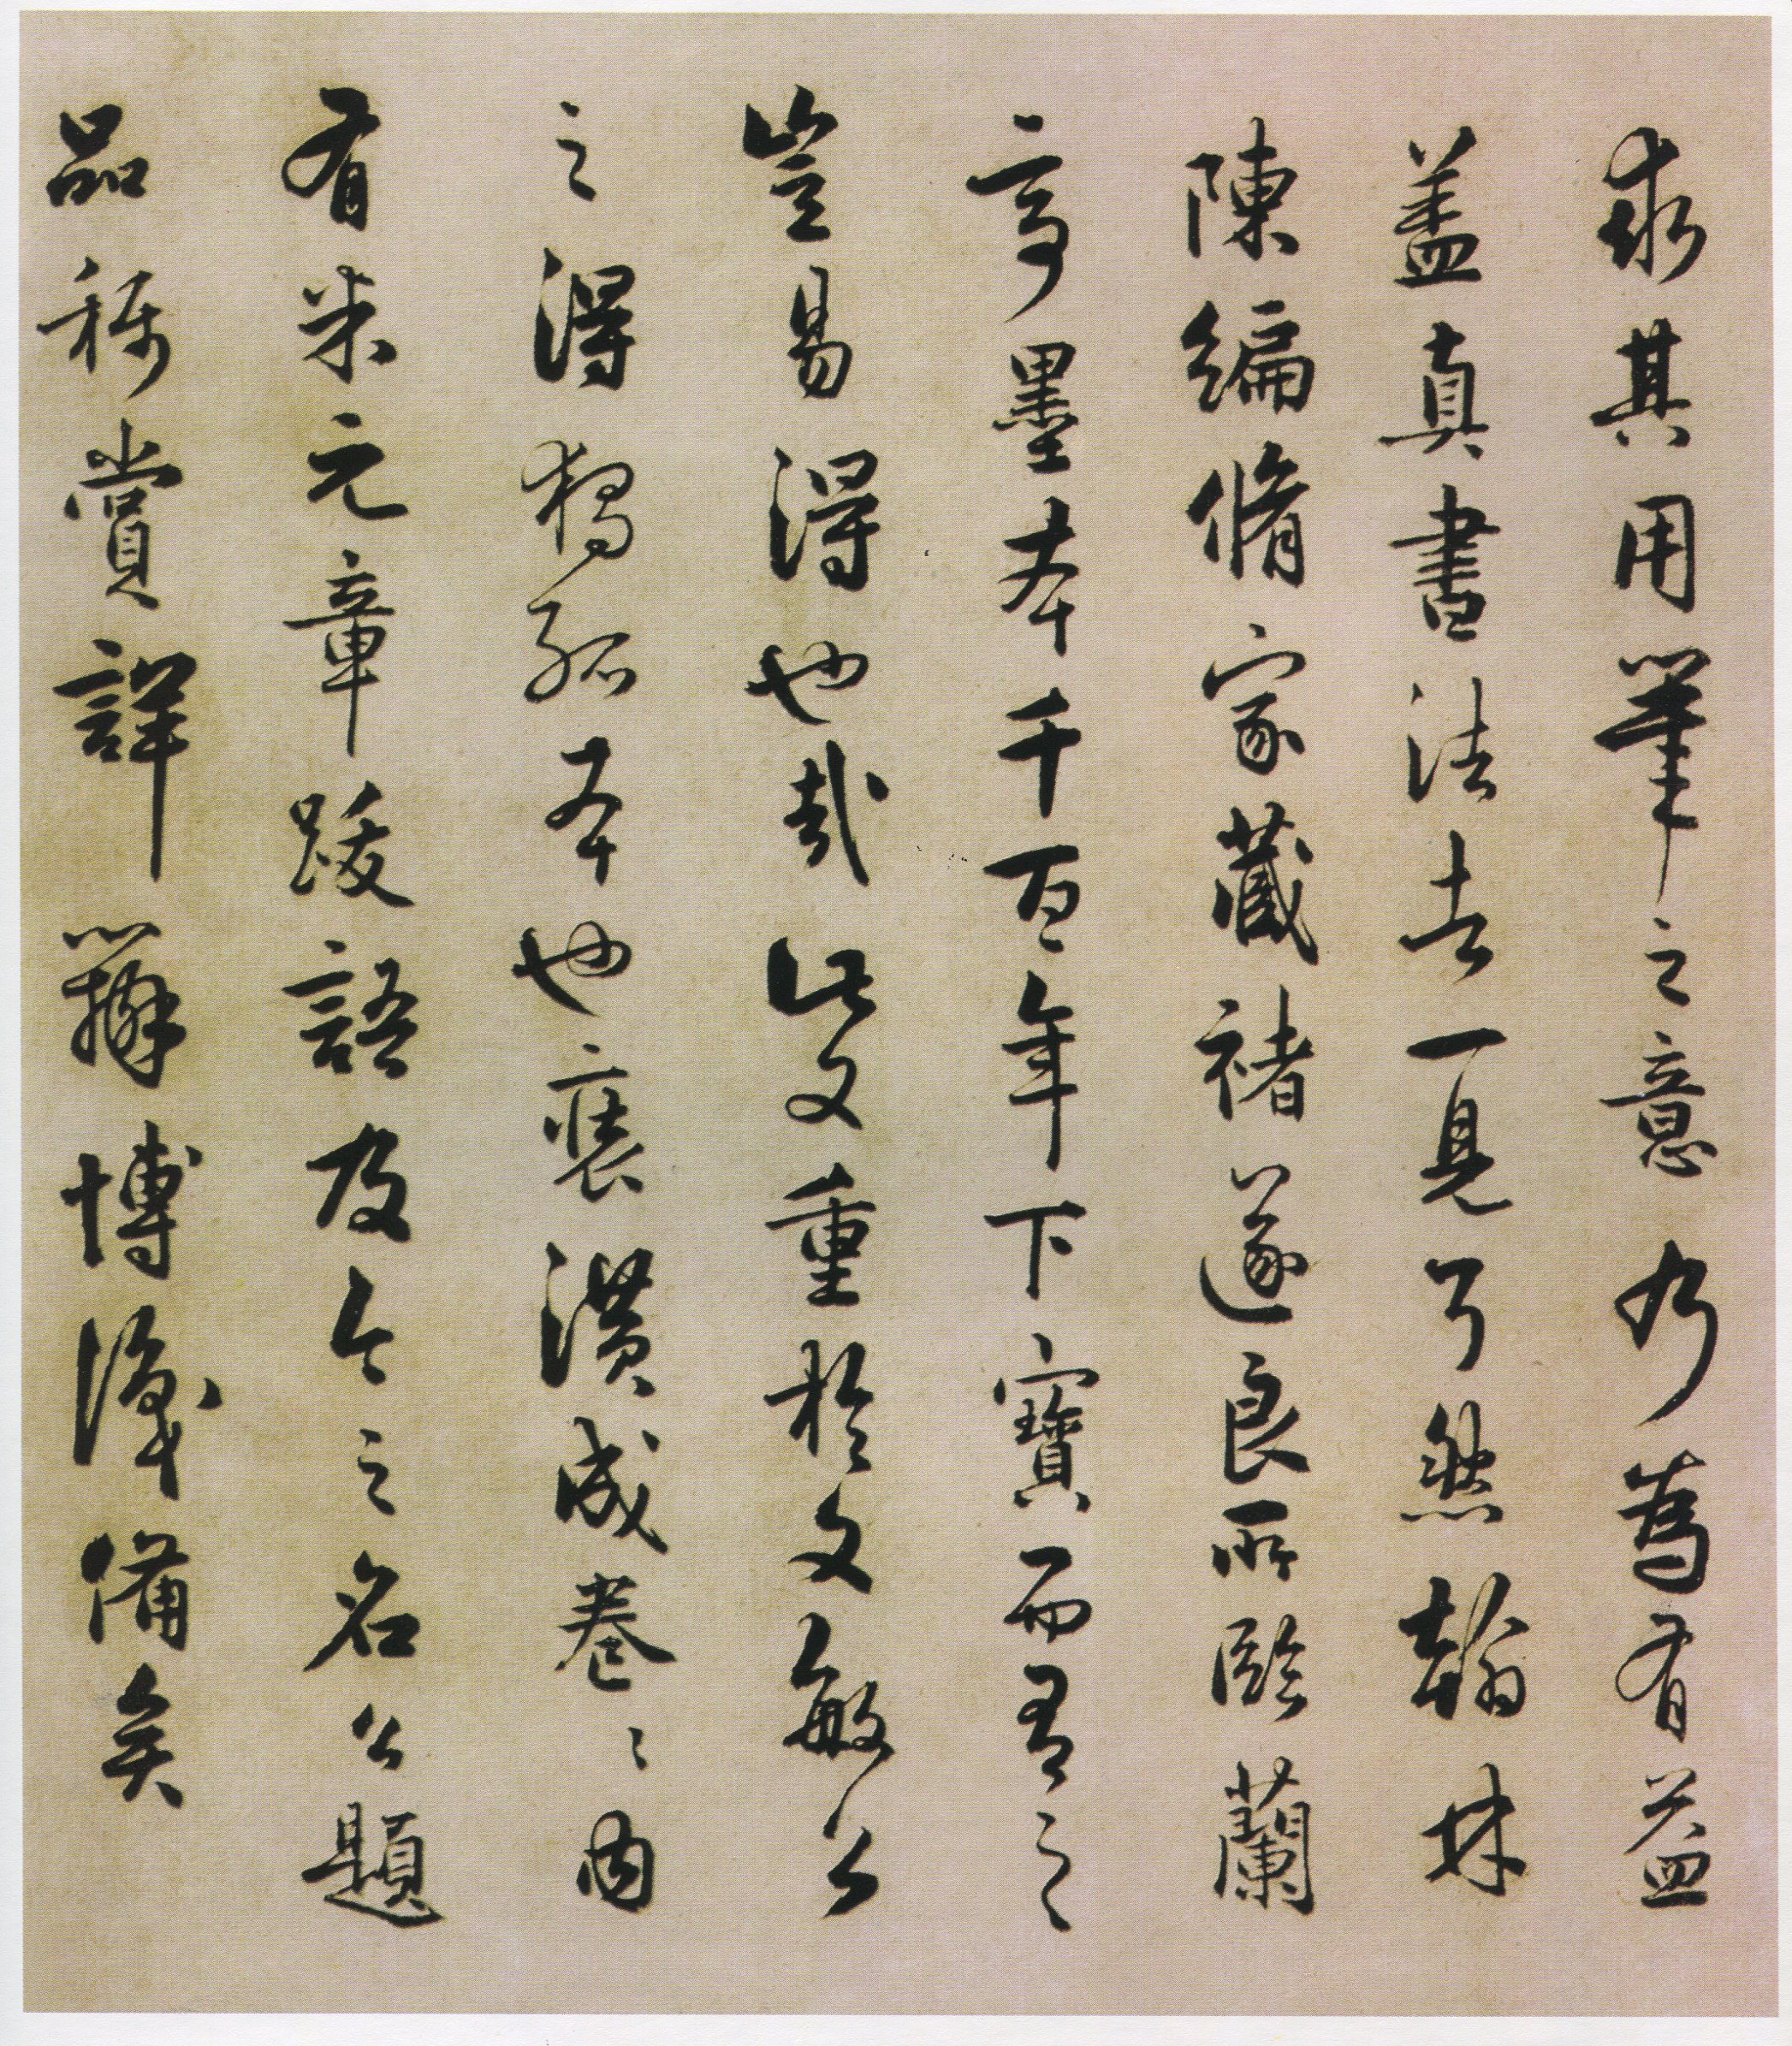 求其用筆之意乃為有益
蓋真書法去一見了然翰林
陳編脩家藏褚遂良所臨蘭
亭墨本千百年下寶而有之
豈易得也哉此文重於文敏公
之得獨孤本也裝潢成卷〻内
有米元章跋語及今之名公題
品稱賞詳辯博識備矣